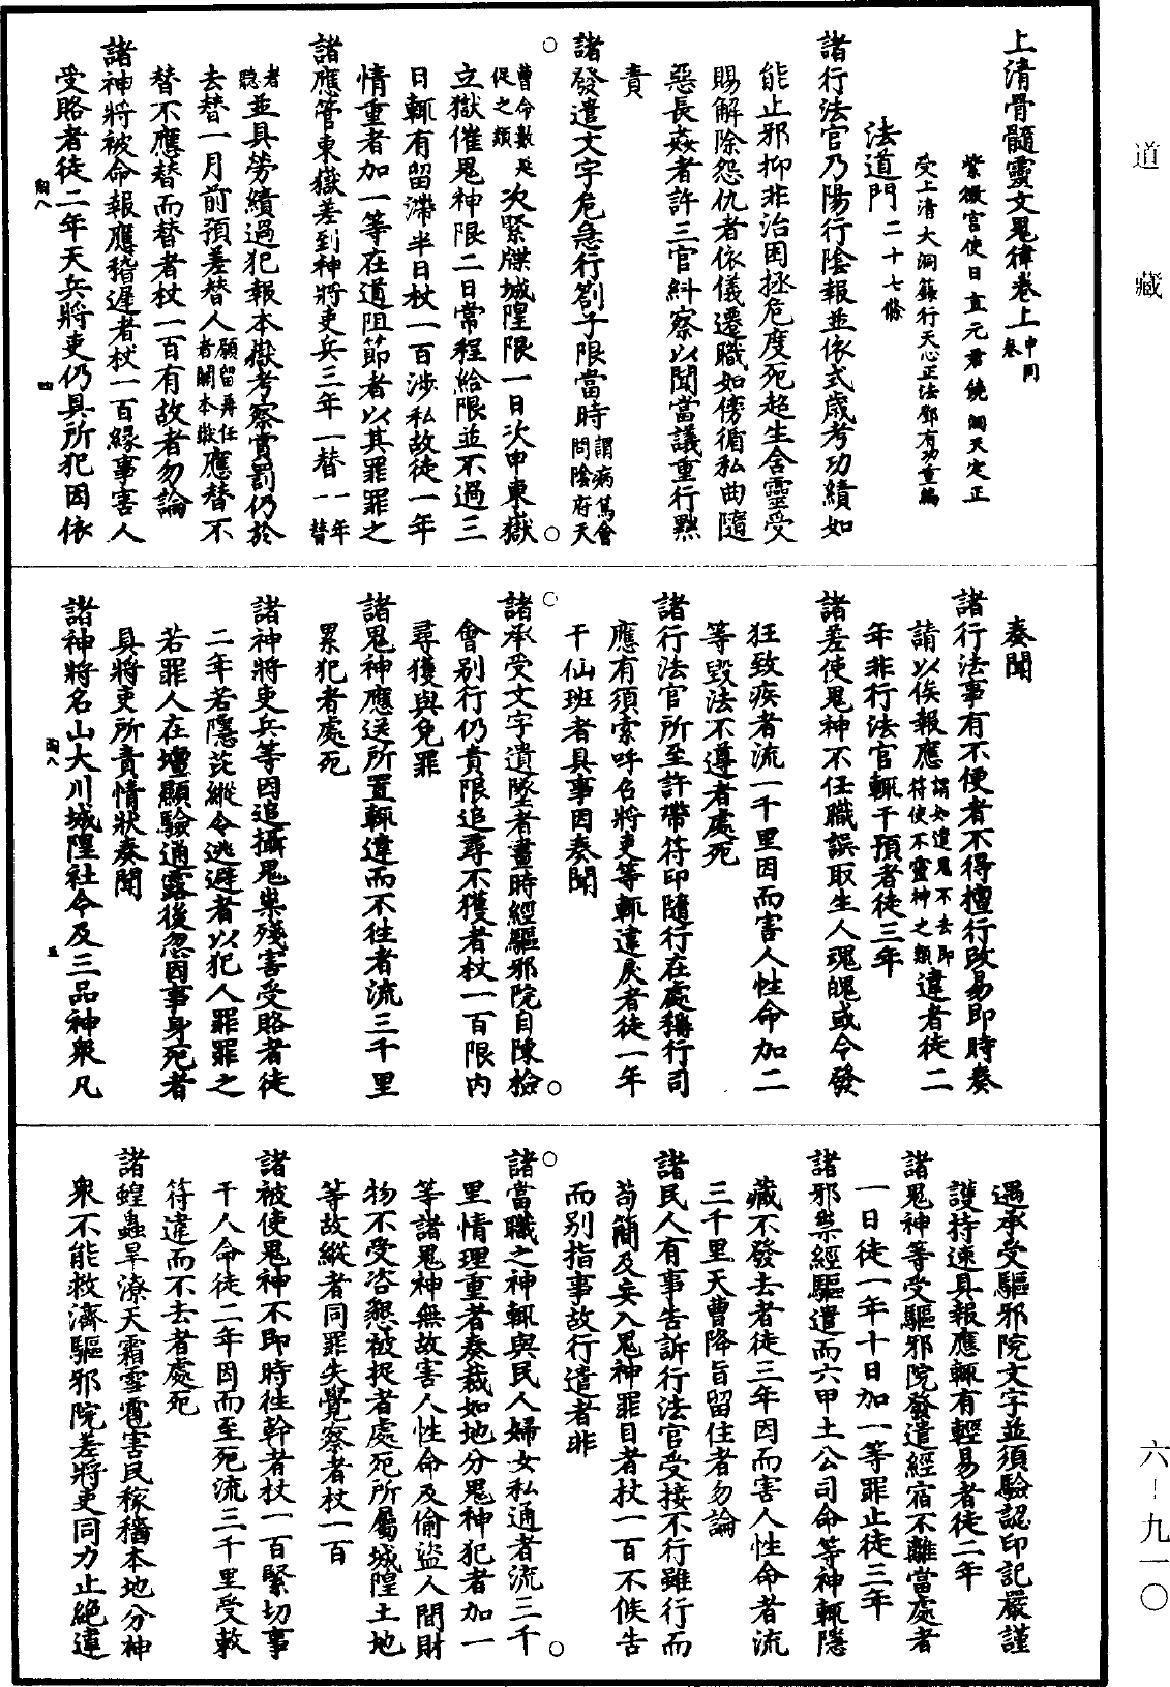 道藏
六-九一〇
上清骨髓靈文鬼律卷上中同卷
紫微宮使日直元君饒洞天定正
受上清大洞籙行天心正法鄧有功重編
法道門二十七條
諸行法官乃陽行陰報並依式歲考功績如
能止邪抑非治困拯危度死超生含靈受
賜解除怨仇者依儀遷職如傍循私曲隨
惡長姦者許三官糾察以聞當議重行黜
責
諸發遣文字危急行劄子限當時謂病篤會問陰府天
曹命數延促之類次緊牒城隍限一日次申東嶽
立獄催鬼神限二日常程給限並不過三
日輒有留滯半日杖一百涉私故徒一年
情重者加一等在道阻節者以其罪罪之
諸應管東嶽差到神將吏兵三年一替一年一替
者聽並具勞績過犯報本嶽考察賞罰仍於
去替一月前預差替人願留再任者關本嶽應替不
替不應替而替者杖一百有故者勿論
諸神將被命報應稽遲者杖一百緣事害人
受賂者徒二年天兵將吏仍具所犯因依
奏聞
諸行法事有不便者不得擅行改易即時奏
請以俟報應謂如遣鬼不去即符使不靈神之類違者徒二
年非行法官輒干預者徒三年
諸差使鬼神不任職誤取生人魂魄或令發
狂致疾者流一千里因而害人性命加二
等毀法不遵者處死
諸行法官所至許帶符印隨行在處稱行司
應有須索呼召將吏等輒違戾者徒一年
干仙班者具事因奏聞
諸承受文字遺墜者畫時經驅邪院自陳檢
會別行仍責限追尋不獲者杖一百限內
尋獲與免罪
諸鬼神應送所置輒違而不往者流三千里
累犯者處死
諸神將吏兵等因追攝鬼祟殘害受賂者徒
二年若隱詿縱令逃避者以犯人罪罪之
若罪人在壇顯驗通露後忽因事身死者
具將吏所責情狀奏聞
諸神將名山大川城隍社令及三品神眾凡
遇承受驅邪院文字並須驗認印記嚴謹
護持速具報應輒有輕易者徒二年
諸鬼神等受驅邪院發遣經宿不離當處者
一日徒一年十日加一等罪止徒三年
諸邪祟經驅遣而六甲土公司命等神輒隱
藏不發去者徒三年因而害人性命者流
三千里天曹降旨留住者勿論
諸民人有事告訴行法官受接不行雖行而
苟簡及妄入鬼神罪目者杖一百不候告
而別指事故行遣者非
諸當職之神輒與民人婦女私通者流三千
里情理重者奏裁如地分鬼神犯者加一
等諸鬼神無故害人性命及偷盜人間財
物不受咨懇被捉者處死所屬城隍土地
等故縱者同罪失覺察者杖一百
諸被使鬼神不即時往幹者杖一百緊切事
干人命徒二年因而至死流三千里受敕
符違而不去者處死
諸蝗蟲旱潦天霜雪雹害民稼穡本地分神
眾不能救濟驅邪院差將吏同力止絕違
陶八
四
陶八
五